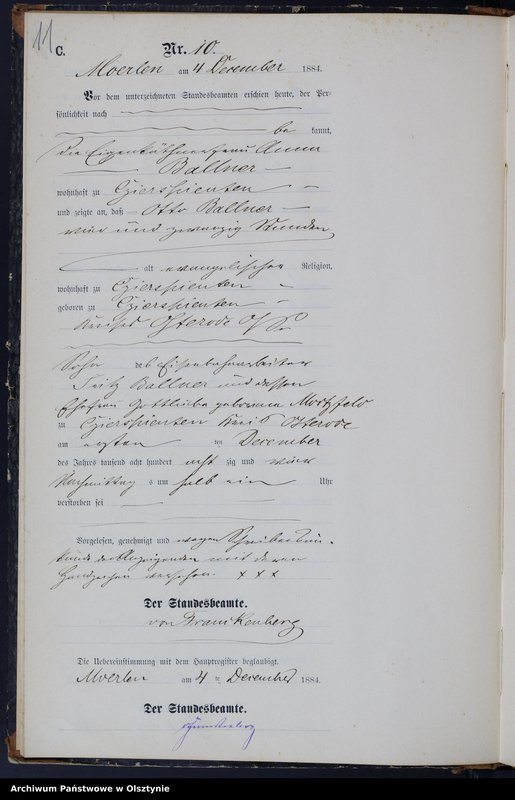 11
C.
Nr. 10.
Moerlen am 4 December 1884.
Vor dem unterzeichneten Standesbeamten erschien heute, der Per-
sönlichkeit nach
be kannt,
die Eigenkäthnerfrau Anna
Ballner
wohnhaft zu Czierspienten
und zeigte an, daß Otto Ballner
vier und zwanzig Stunden
alt evangelischer Religion,
wohnhaft zu Czierspienten
geboren zu Czierspienten
Kreises Osterode
Sohn des Eisenbahnarbeiter
Fritz Ballner und dessen
Ehefrau Gottliebe geborene
zu Czierspienten Kreis Osterode
am ersten ten December
des Jahres tausend acht hundert acht zig und vier
Nachmittag s um halb ein Uhr
verstorben sei
Vorgelesen, genehmigt und wegen Schreibensun-
kunde der Anzeigenden mit deren
Handzeichen versehen. x x x
Der Standesbeamte.
von Frankenberg
Die Uebereinstimmung mit dem Hauptregister beglaubigt.
Moerlen am 4 te December 1884.
Der Standesbeamte.
Archiwum Państwowe w Olsztynie